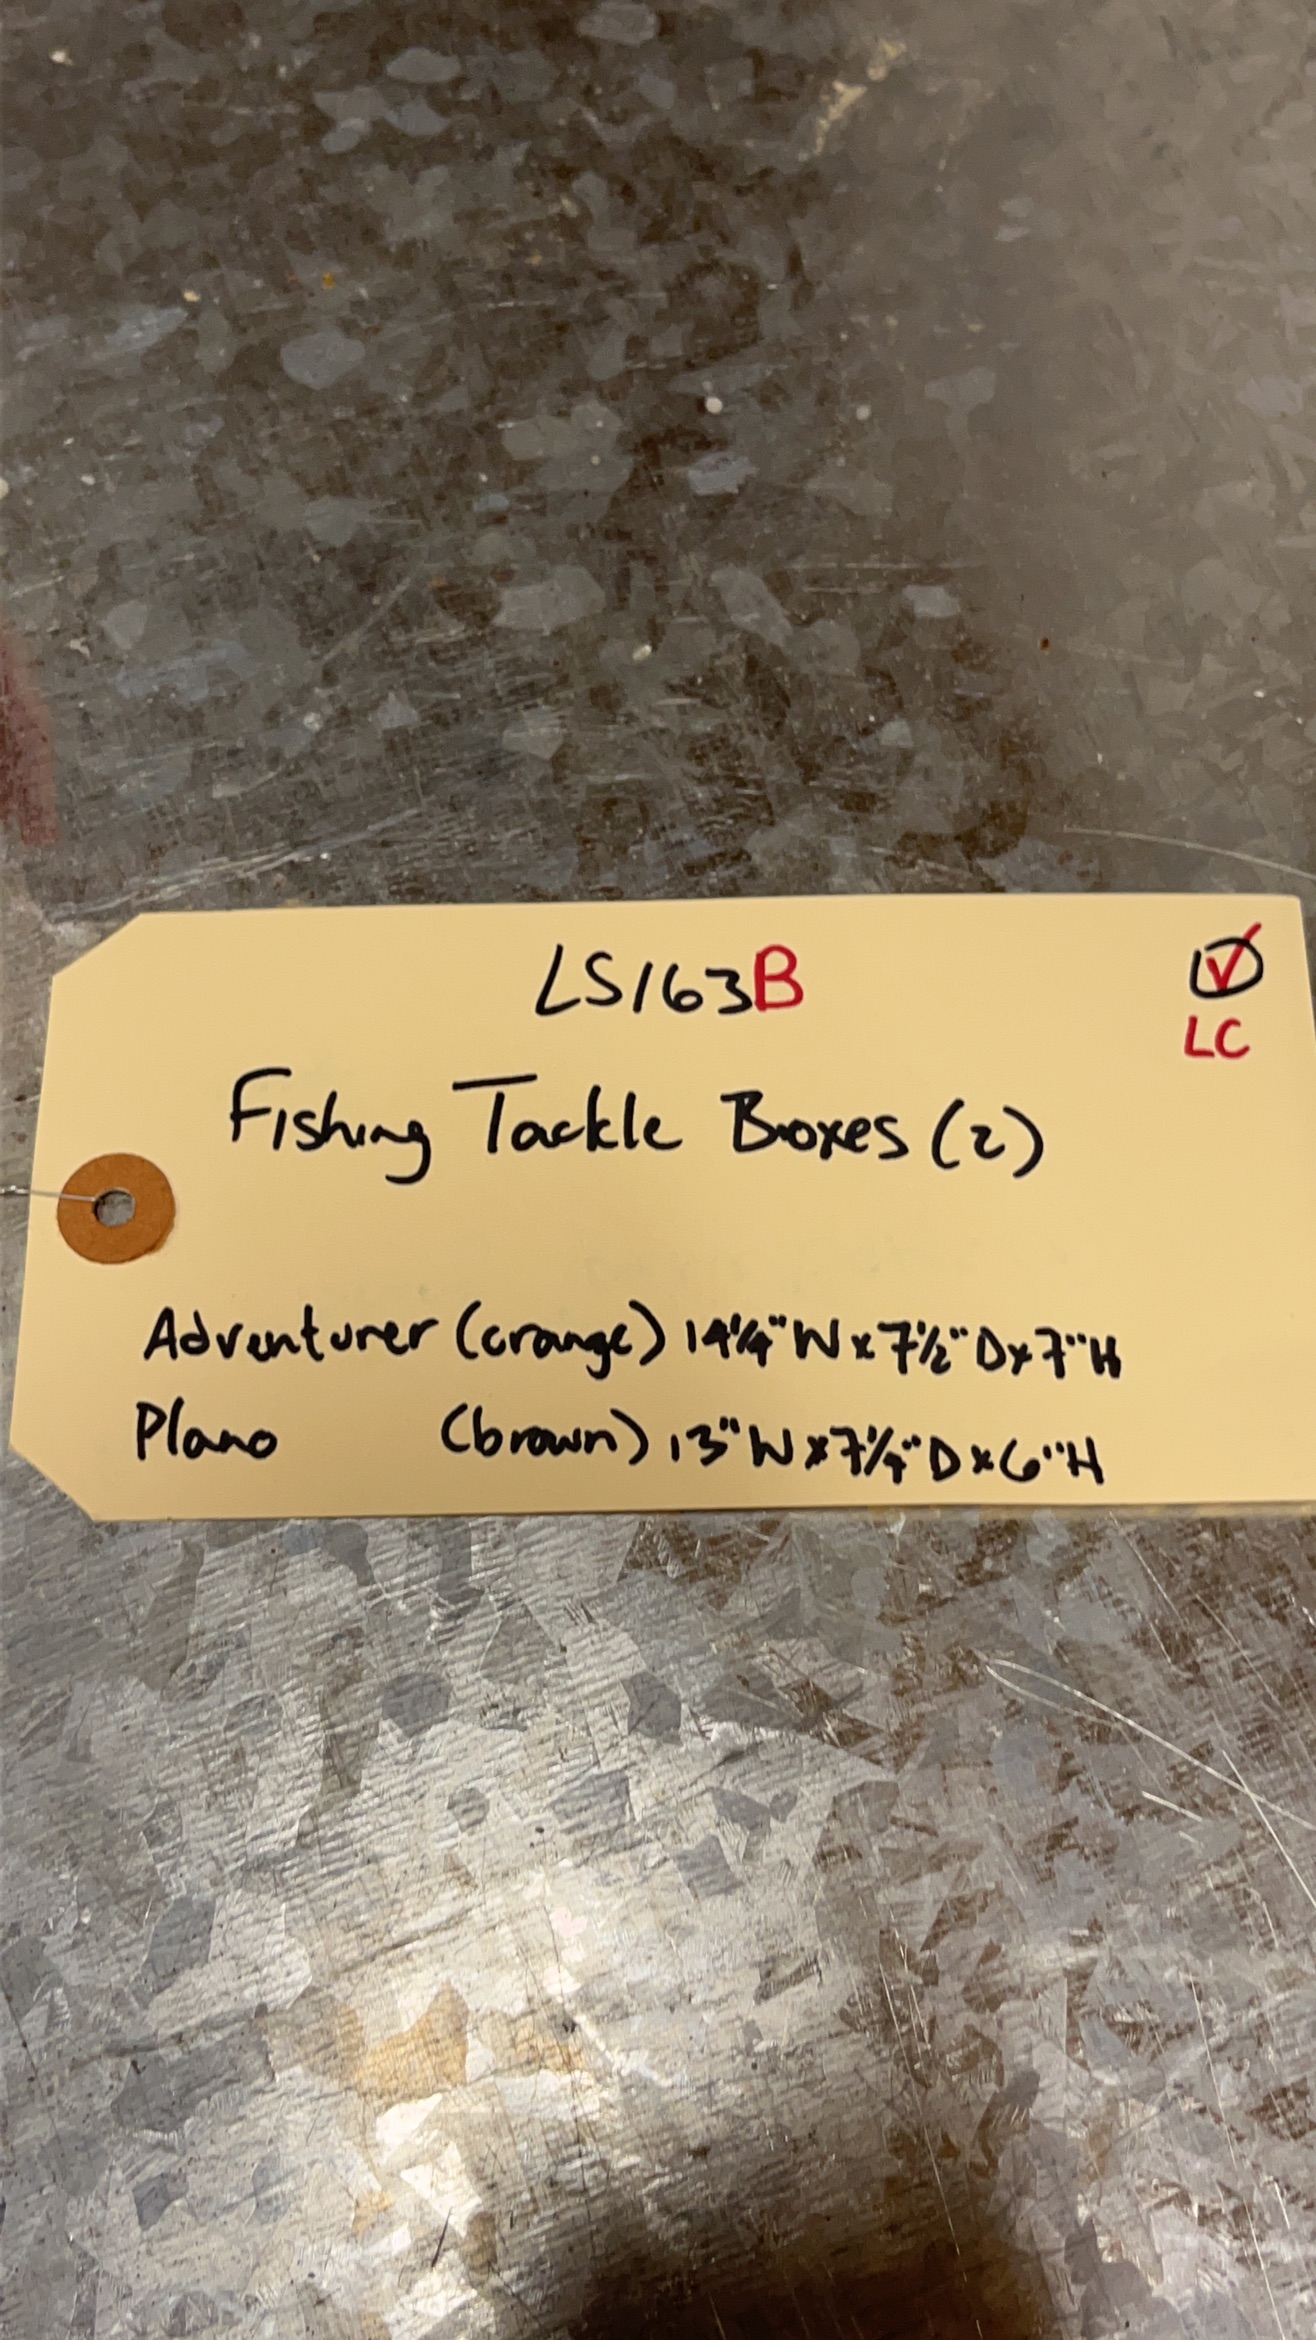 LS163B
LC
Fishing Tackle Boxes (2)
Adventurer (orange) 14 1/4" W x 7 1/2" D x 7" H
Plano (brown) 13" W x 7 1/4" D x 6" H